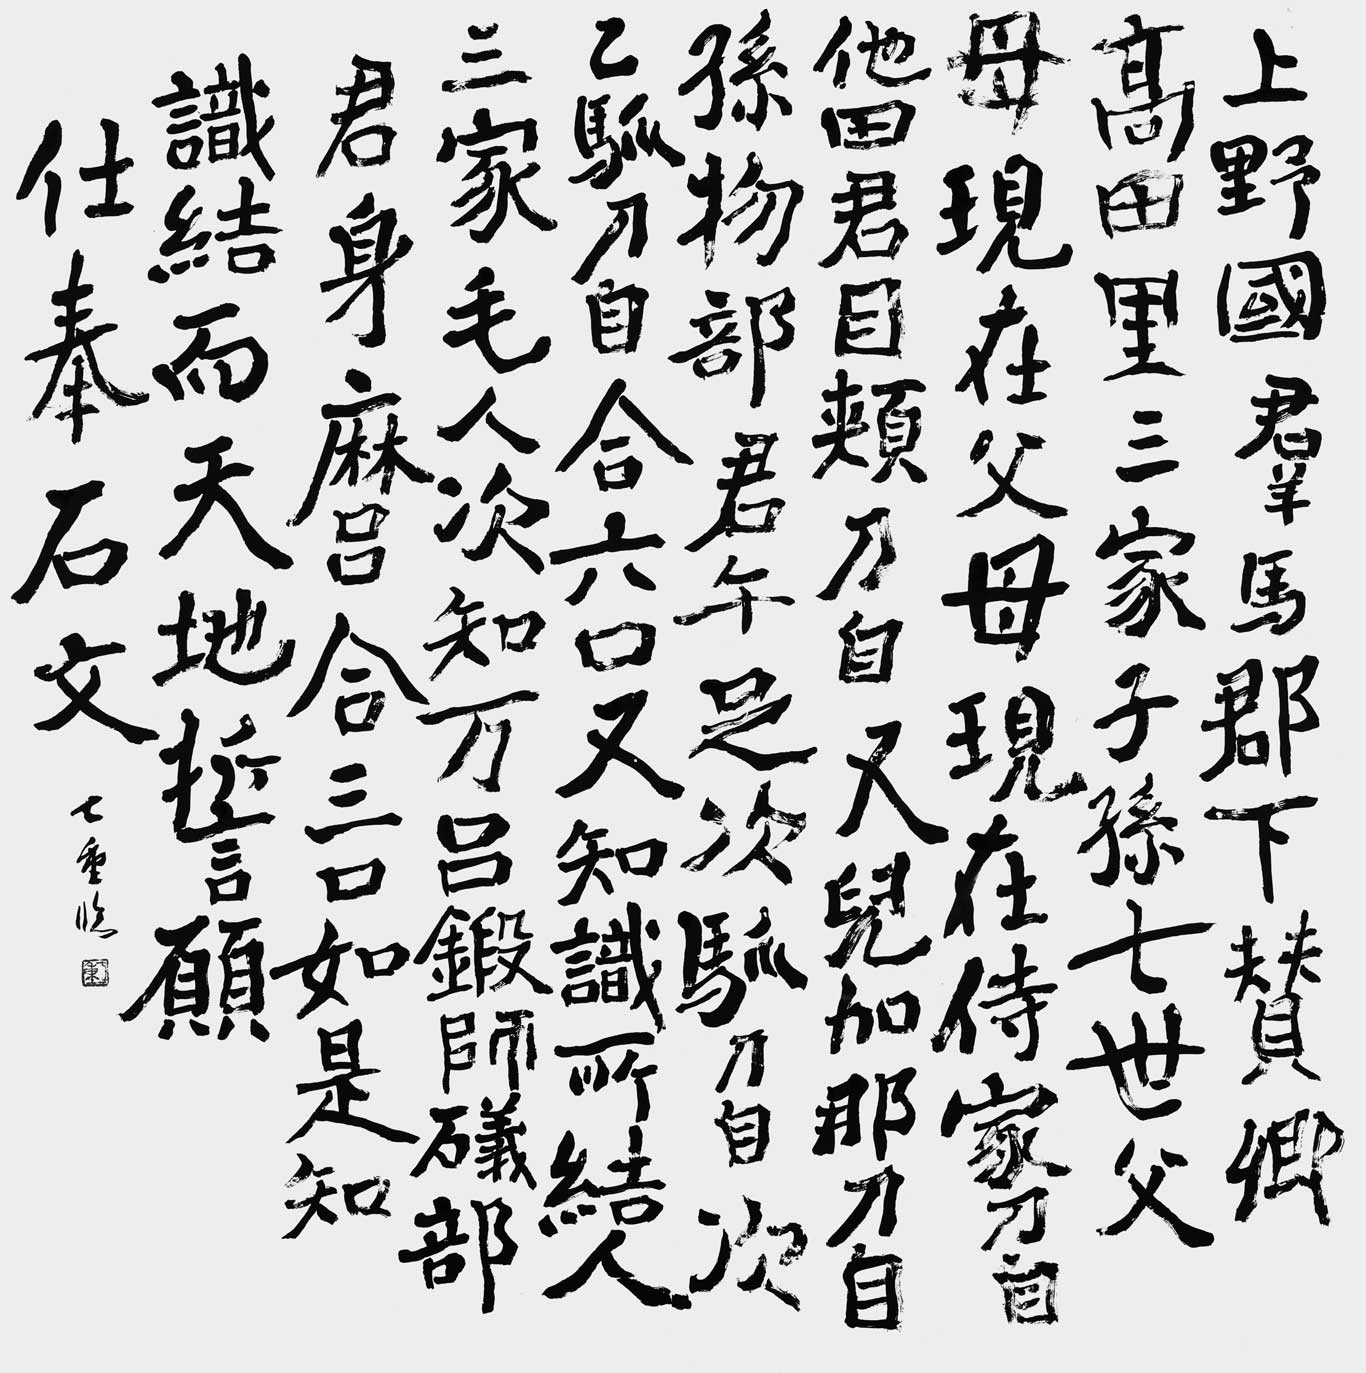 上野國羣馬郡下賛郷
高田里三家子孫七世父
母現在父母現在侍家刀自
他田君目頬刀自又兒加那刀自
孫物部君午足次馴刀自次
乙馴刀自合六口又知識所結人
三家毛人次知万呂鍛師礒部
君身麻呂合三口如是知
識結而天地誓願
仕奉石文
七重臨